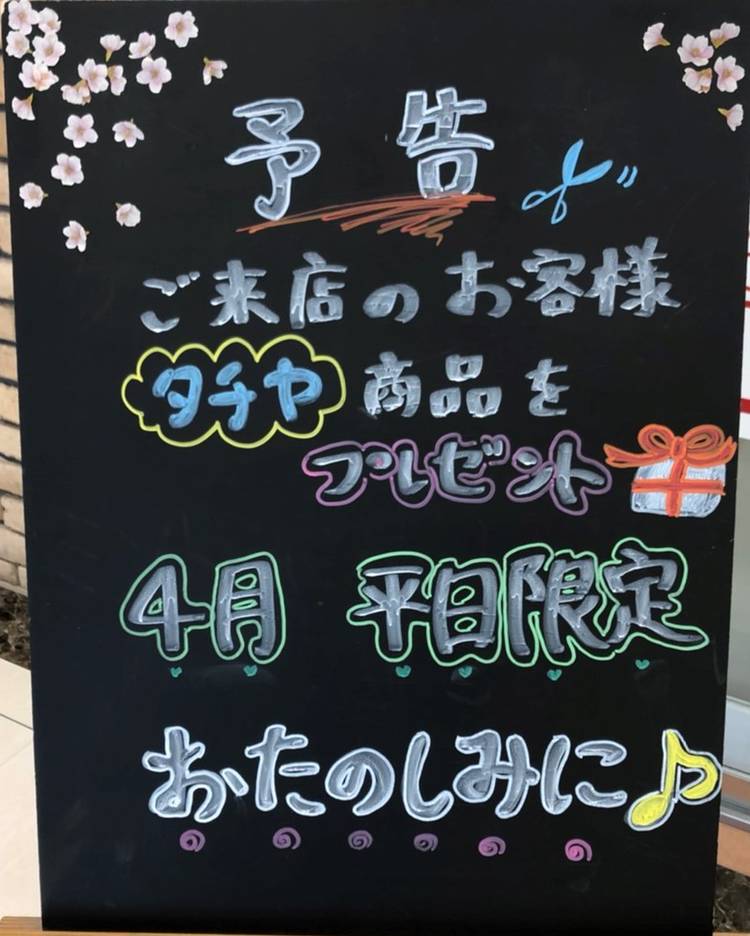 予告
ご来店のお客様
タチヤ商品を
プレゼント
4月 平日限定
おたのしみに♪